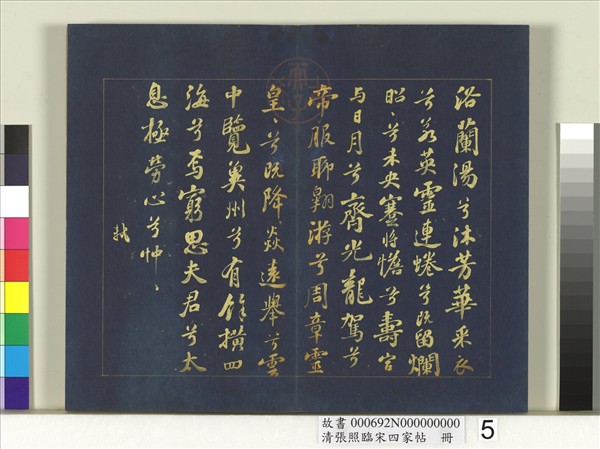 浴蘭湯兮沐芳華采衣
兮若英靈連蜷兮既留爛
昭〻兮未央蹇將憺兮壽宮
与日月兮齊光龍駕兮
帝服聊翱游兮周章靈
皇〻兮既降猋遠舉兮雲
中覽冀州兮有餘橫四
海兮焉窮思夫君兮太
息極勞心兮忡〻
軾
故書 000692N000000000
清張照臨宋四家帖 冊
5